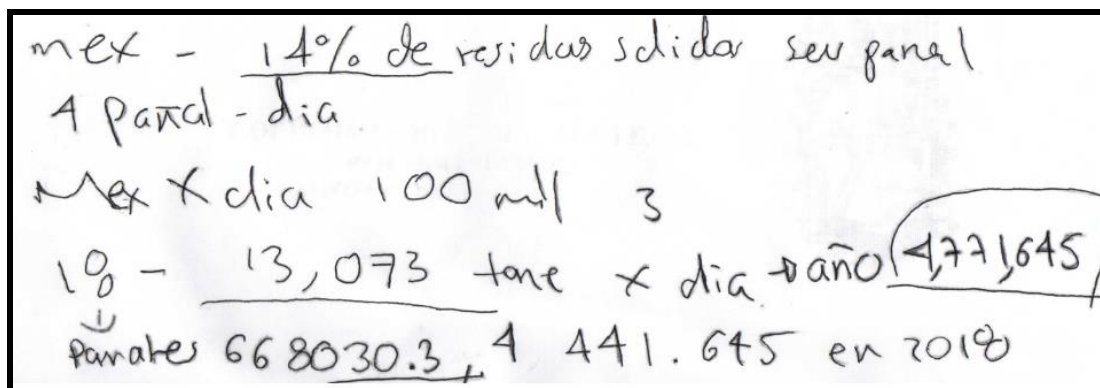 mex - 14% de residuos solidos son pañal
4 Pañal - dia
Mex x dia 100 mil 3
18 - 13,073 tone x dia → año 4,771,645
Pañales 668030.3, 4 441.645 en 2018